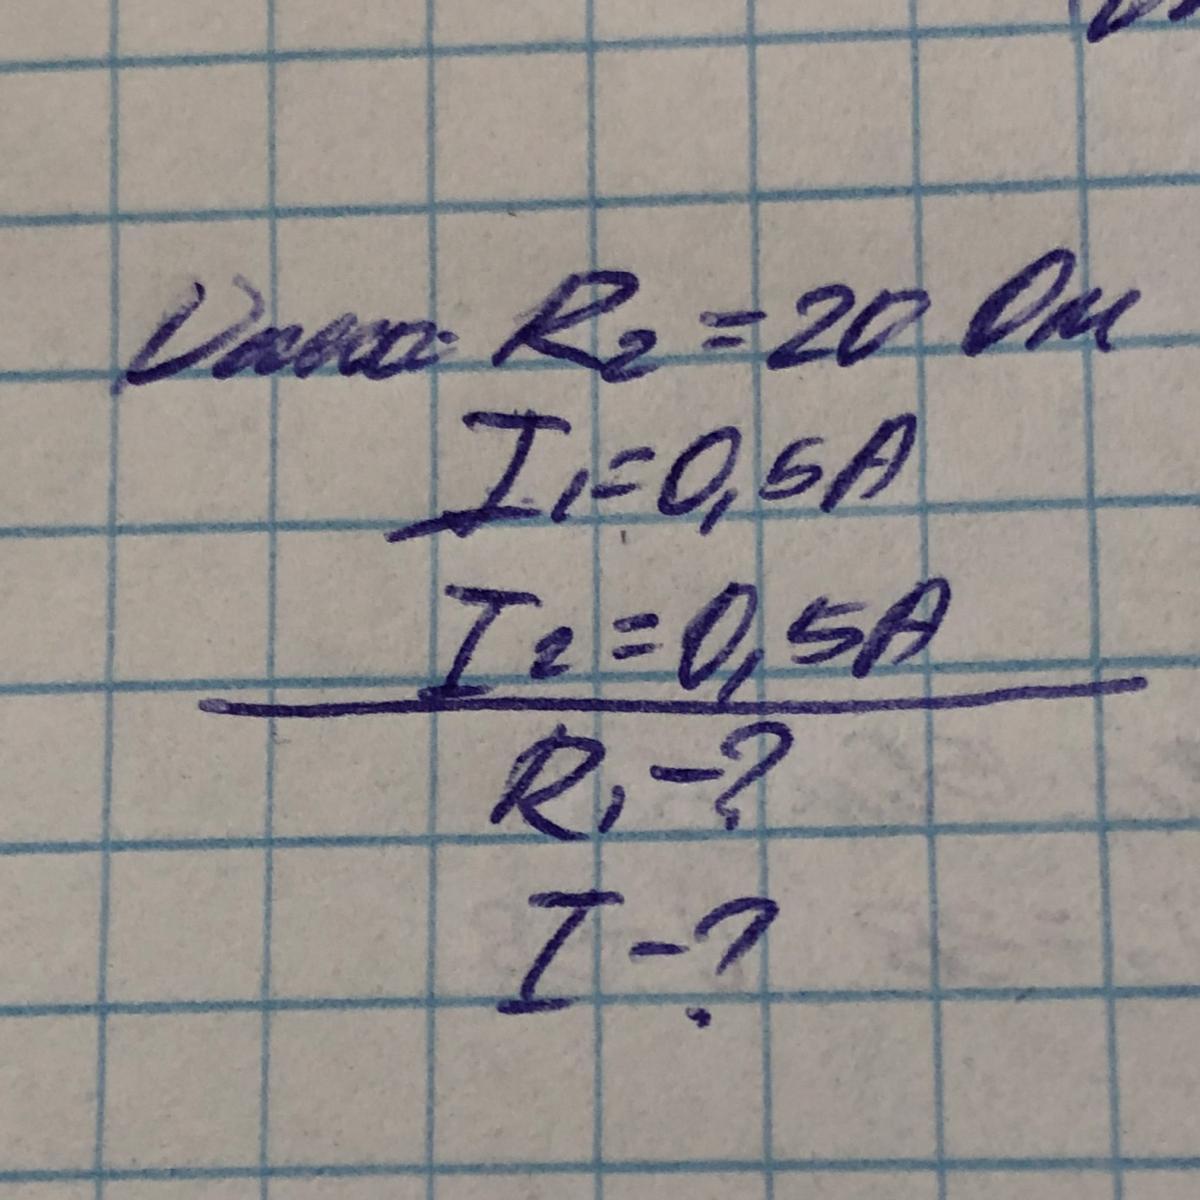 Дано: R₂ = 20 Ом
I₁ = 0,5A
I₂ = 0,5A
R₁ - ?
I - ?